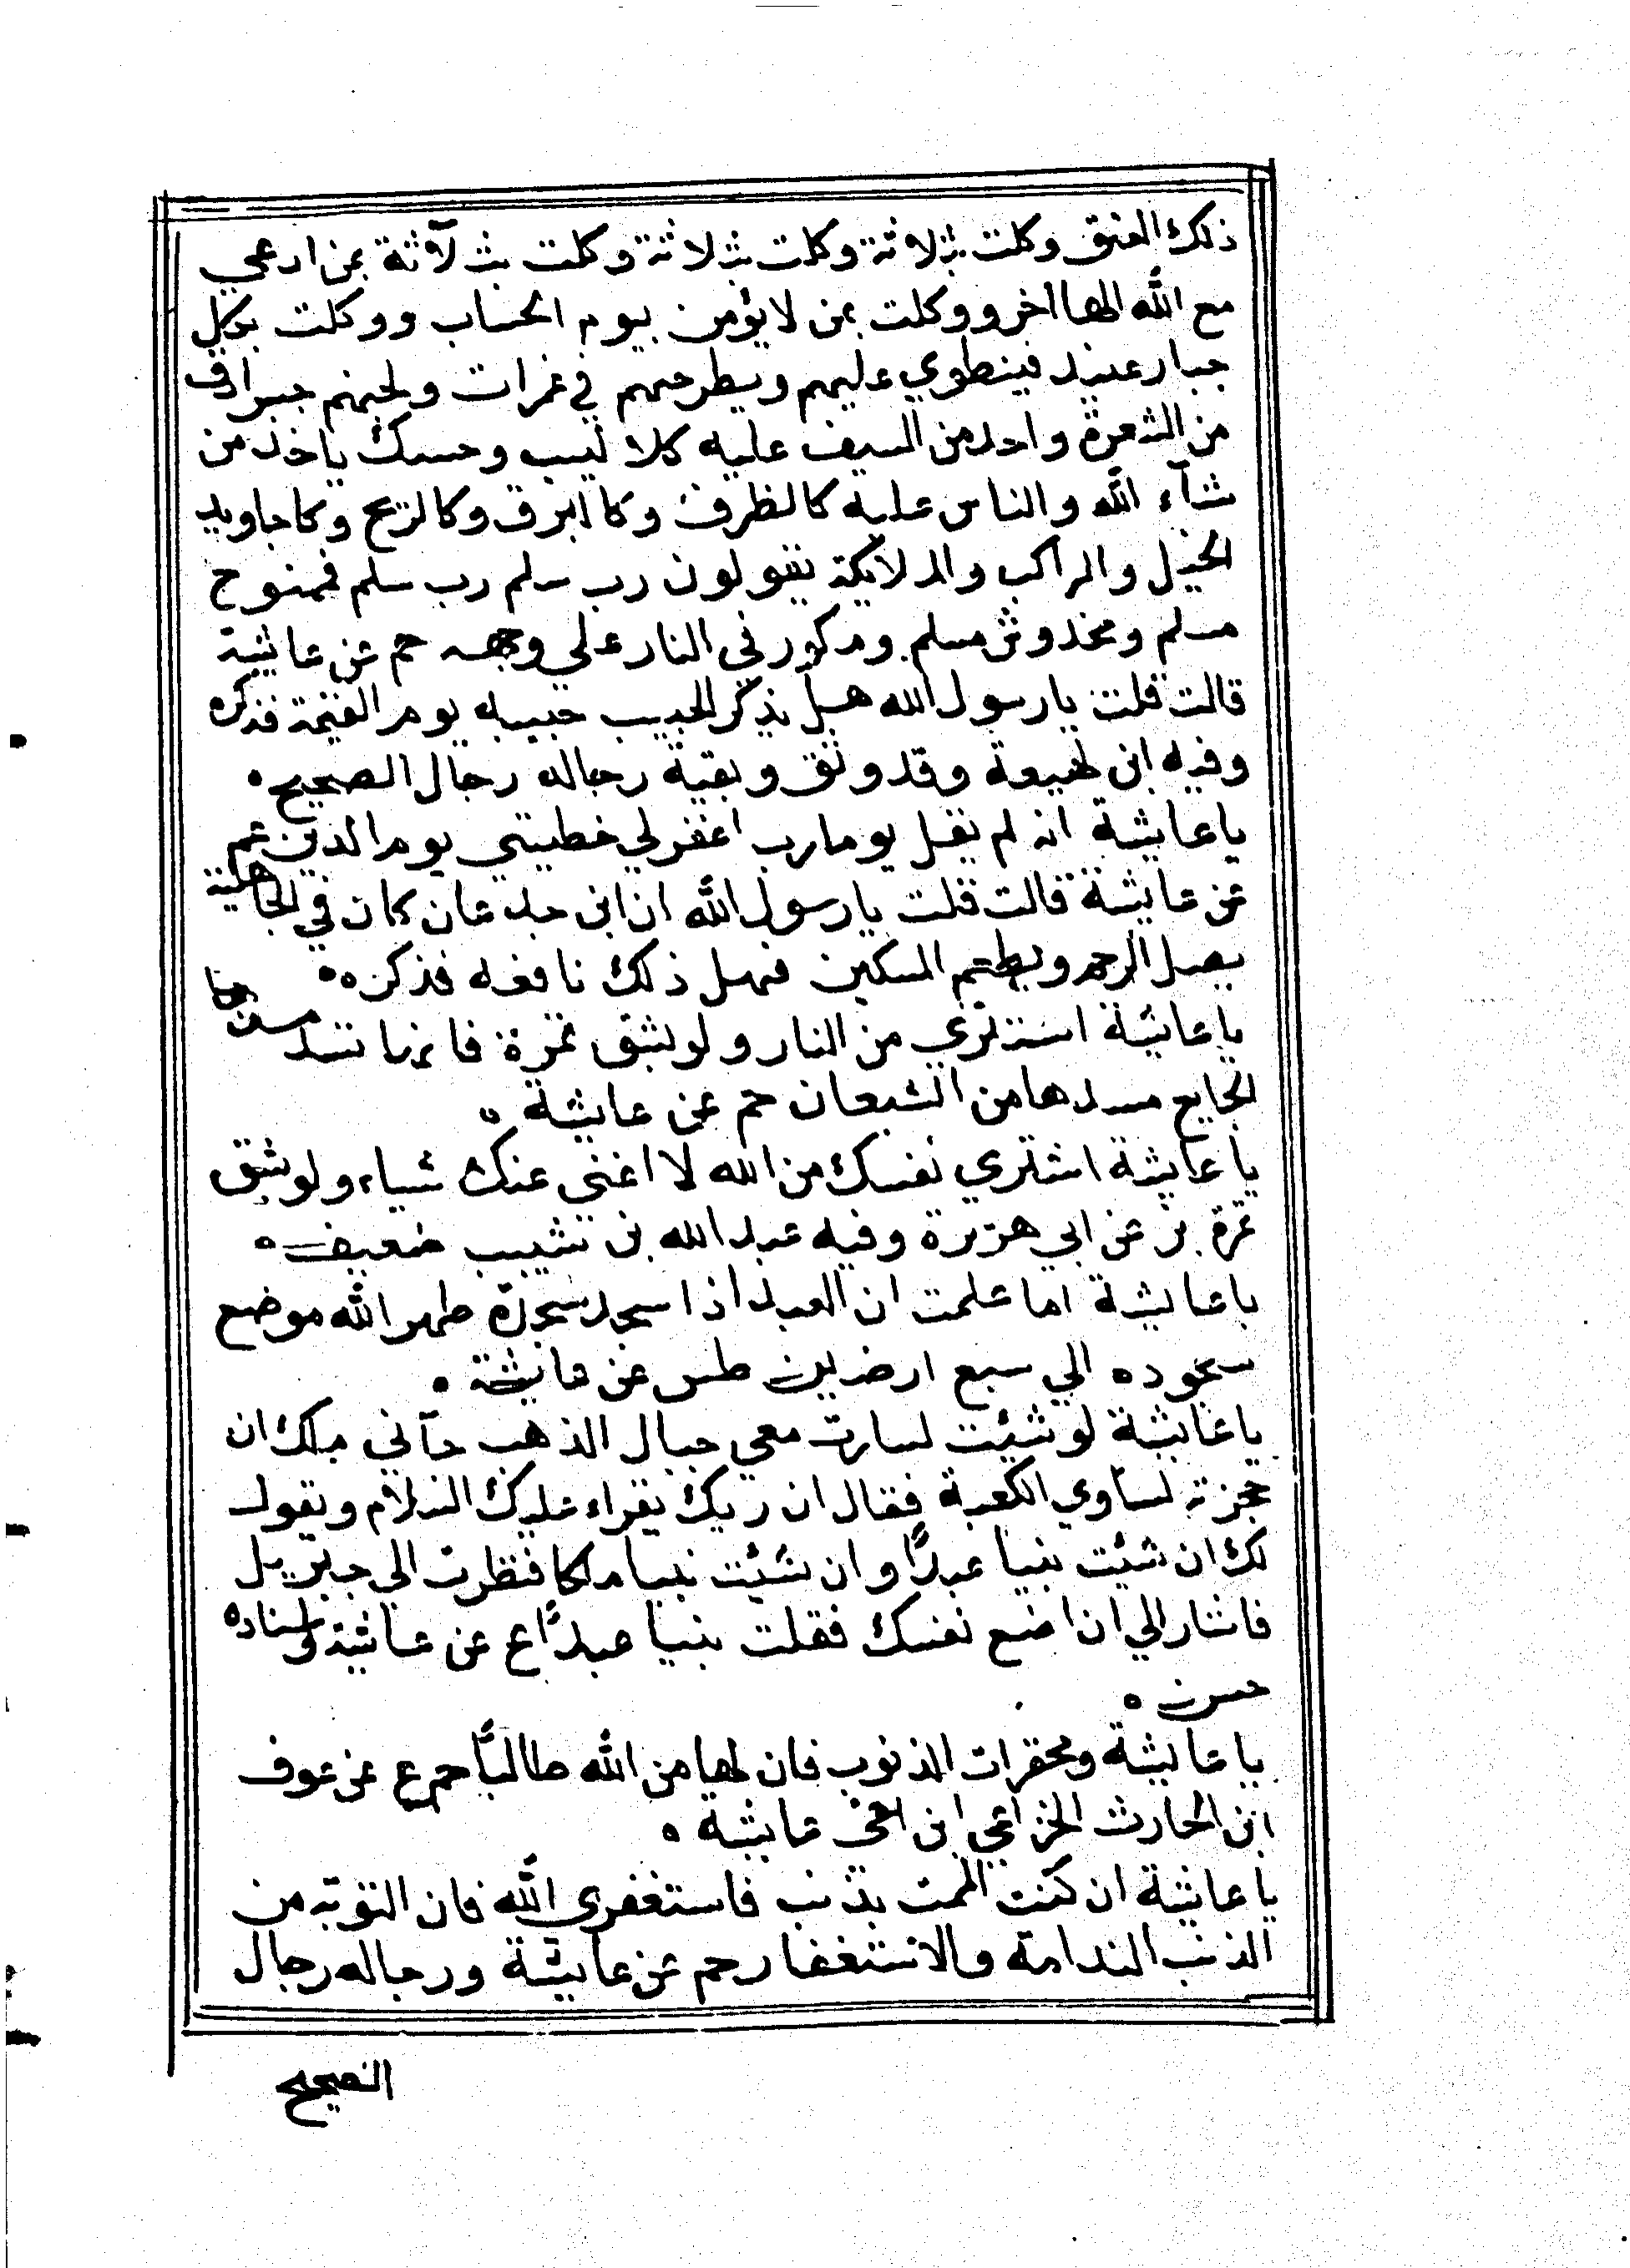 ذلك العنق وكلت بثلاثة وكلت بثلاثة وكلت بثلاثة بمن ادعي
مع الله الها اخر ووكلت بمن لا يؤمن بيوم الحساب ووكلت بكل
جبار عنيد فينطوي عليهم ويطرحهم في غمرات ولجهنم جسر ادق
من الشعرة واحد من السيف عليه كلاليب وحسك ياخذ من
شآء الله والناس عليه كالطرف وكالبرق وكالريح وكاجاويد
الخيل والراكب والملايكة يقولون رب سلم رب سلم فمنوح
مسلم ومخدوش مسلم ومكور في النار علي وجهه حم عن عايشة
قالت قلت يا رسول الله هل يذكر الحبيب حبيبه يوم القيمة فذكره
وفيه ابن لهيعة وقد وثق وبقية رجاله رجال الصحيح
يا عايشة انه لم يقل يوما رب اغفر لي خطيتي يوم الدين عم
عن عايشة قالت قلت يا رسول الله ان ابن جدعان كان في الجاهلية
يصل الرحم ويطعم المسكين فهل ذلك نافعه فذكره
يا عايشة استتري من النار ولو بشق تمرة فانها تسد من
الجايع مسدها من الشبعان حم عن عايشة
يا عايشة اشتري نفسك من الله لا اغني عنك شياء ولو بشق
تمرة بز عن ابي هريرة وفيه عبد الله بن شبيب ضعيف
يا عايشة اما علمت ان العبد اذا سجد سجدة طهر الله موضع
سجوده الي سبع ارضين طس عن عايشة
يا عايشة لو شئت لسارت معي جبال الذهب جآني ملك ان
حجزته لساوي الكعبة فقال ان ربك يقراء عليك السلام ويقول
لك ان شئت نبيا عبدًا وان شئت نبيا ملكا فنظرت الي جبريل
فاشار الي ان اضع نفسك فقلت نبيا عبدًا ع عن عايشة واسناده
حسن
يا عايشة ومحقرات الذنوب فان لها من الله طالبًا حم ع عن عوف
ابن الحارث الخزاعي ابن اخي عايشة
يا عايشة ان كنت الممت بذنب فاستغفري الله فان التوبة من
الذنب الندامة والاستغفار حم عن عايشة ورجاله رجال
الصحيح